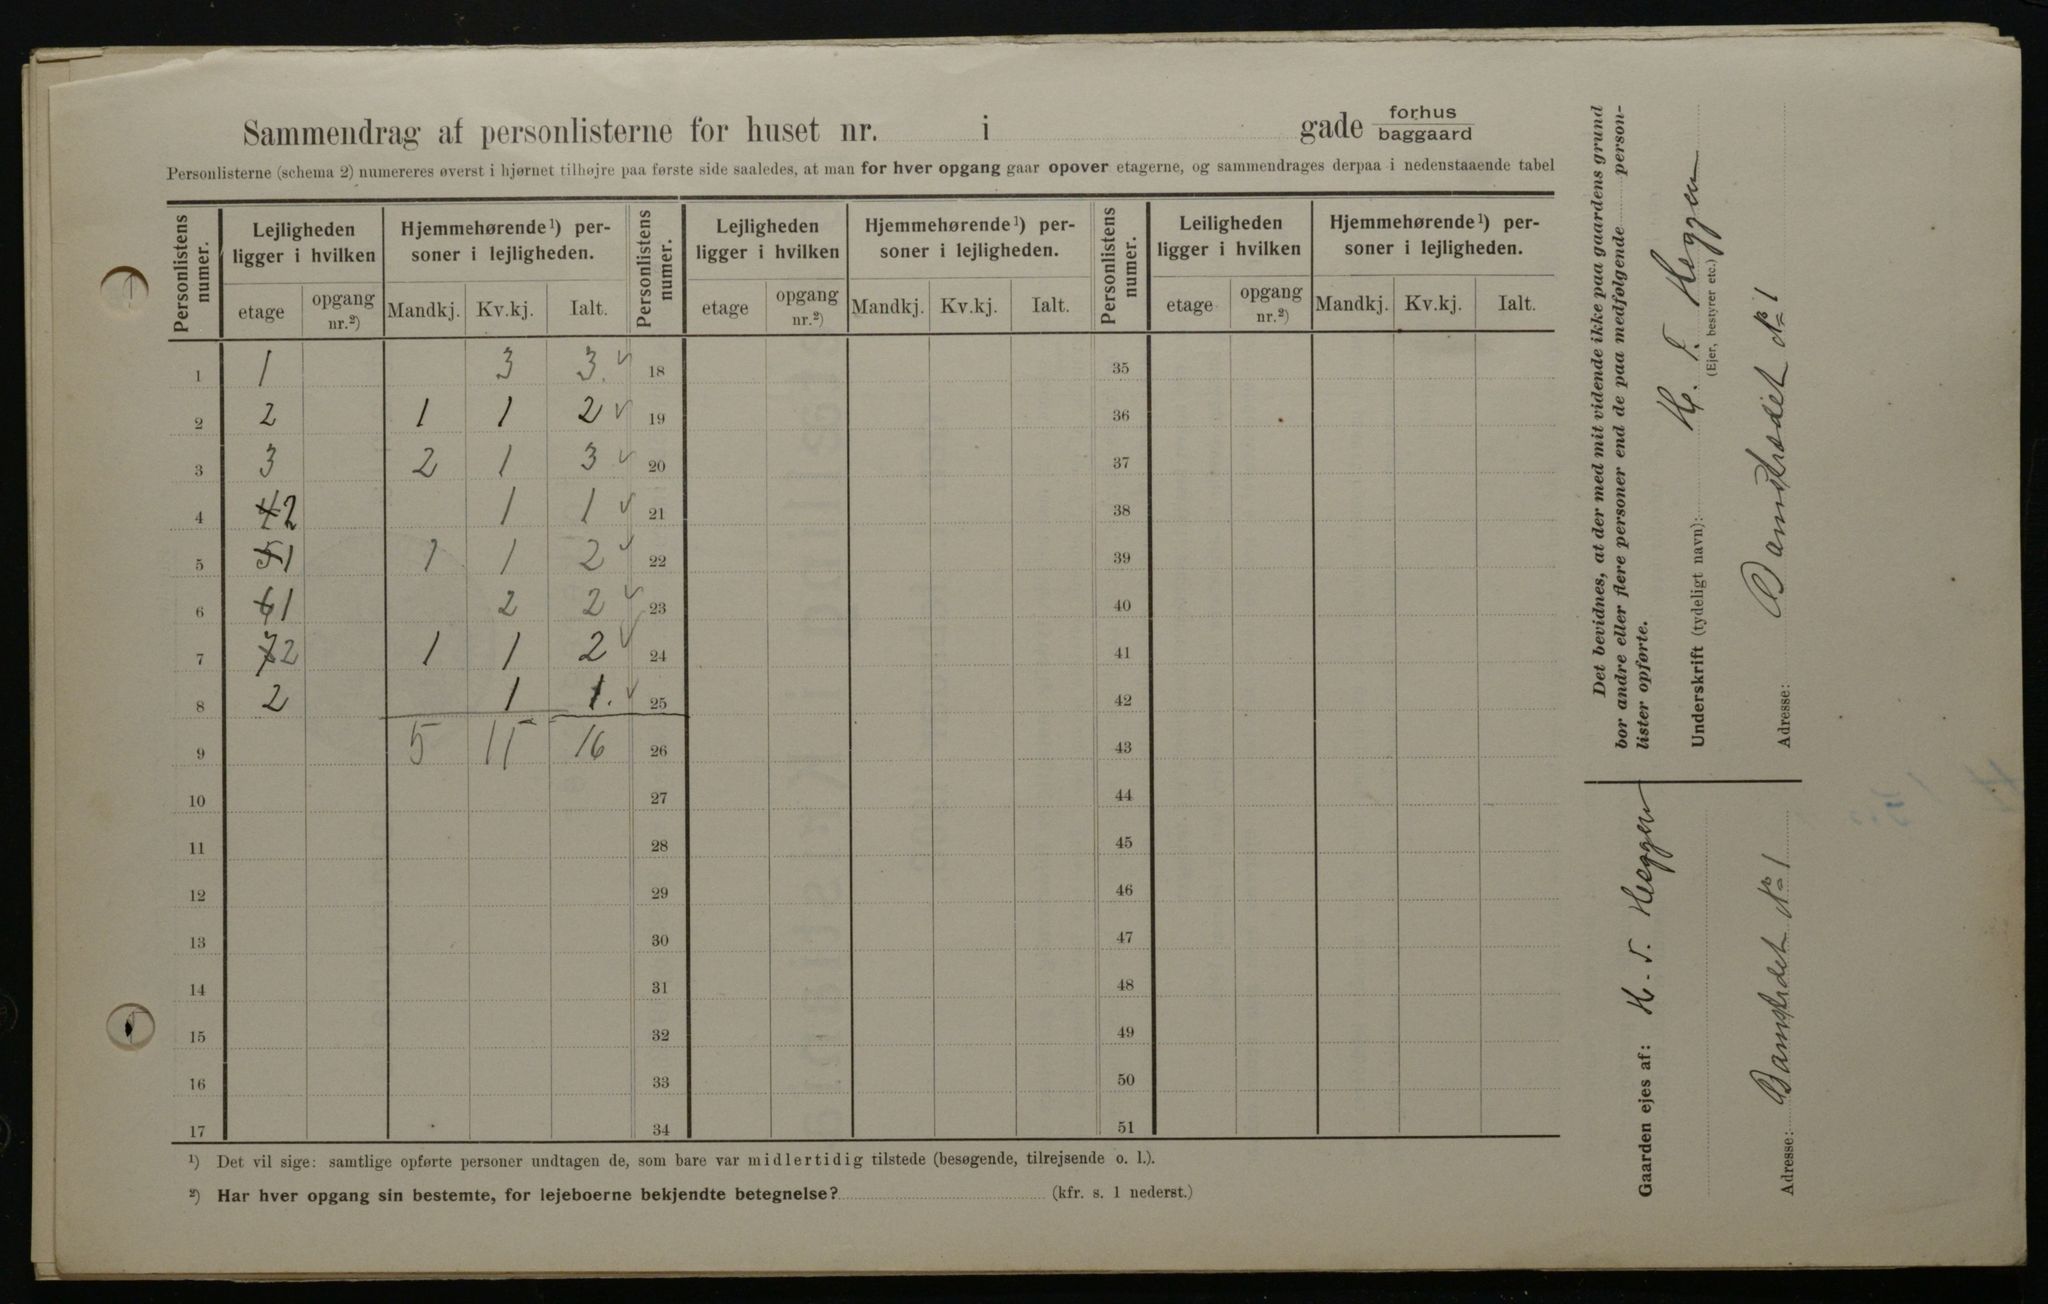 Sammendrag af personlisterne for huset nr. i gade forhus
baggaard
Personlisterne (schema 2) numereres øverst i hjørnet tilhøjre paa første side saaledes, at man for hver opgang gaar opover etagerne, og sammendrages derpaa i nedenstaaende tabel
Personlistens numer. Lejligheden ligger i hvilken Hjemmehørende¹) personer i lejligheden. Personlistens numer. Lejligheden ligger i hvilken Hjemmehørende¹) personer i lejligheden. Personlistens numer. Leiligheden ligger i hvilken Hjemmehørende¹) personer i lejligheden.
etage opgang nr.²) Mandkj. Kv.kj. Ialt. etage opgang nr.²) Mandkj. Kv.kj. Ialt. etage opgang nr.²) Mandkj. Kv.kj. Ialt.
1 1 3 3. 18 35
2 2 1 1 2 19 36
3 3 2 1 3 20 37
4 4 2 1 1 21 38
5 5 1 1 1 2 22 39
6 6 1 2 2 23 40
7 7 2 1 1 2 24 41
8 2 1 1. 25 42
9 5 11 16 26 43
10 27 44
11 28 45
12 29 46
13 30 47
14 31 48
15 32 49
16 33 50
17 34 51
¹) Det vil sige: samtlige opførte personer undtagen de, som bare var midlertidig tilstede (besøgende, tilrejsende o. l.).
²) Har hver opgang sin bestemte, for lejeboerne bekjendte betegnelse? (kfr. s. 1 nederst.)
Det bevidnes, at der med mit vidende ikke paa gaardens grund
bor andre eller flere personer end de paa medfølgende person-
lister opførte.
Underskrift (tydeligt navn): H. T. Heggen
(Ejer, bestyrer etc.)
Adresse: Banstrædet No 1
Gaarden ejes af: H. T. Heggen
Adresse: Banstrædet No 1